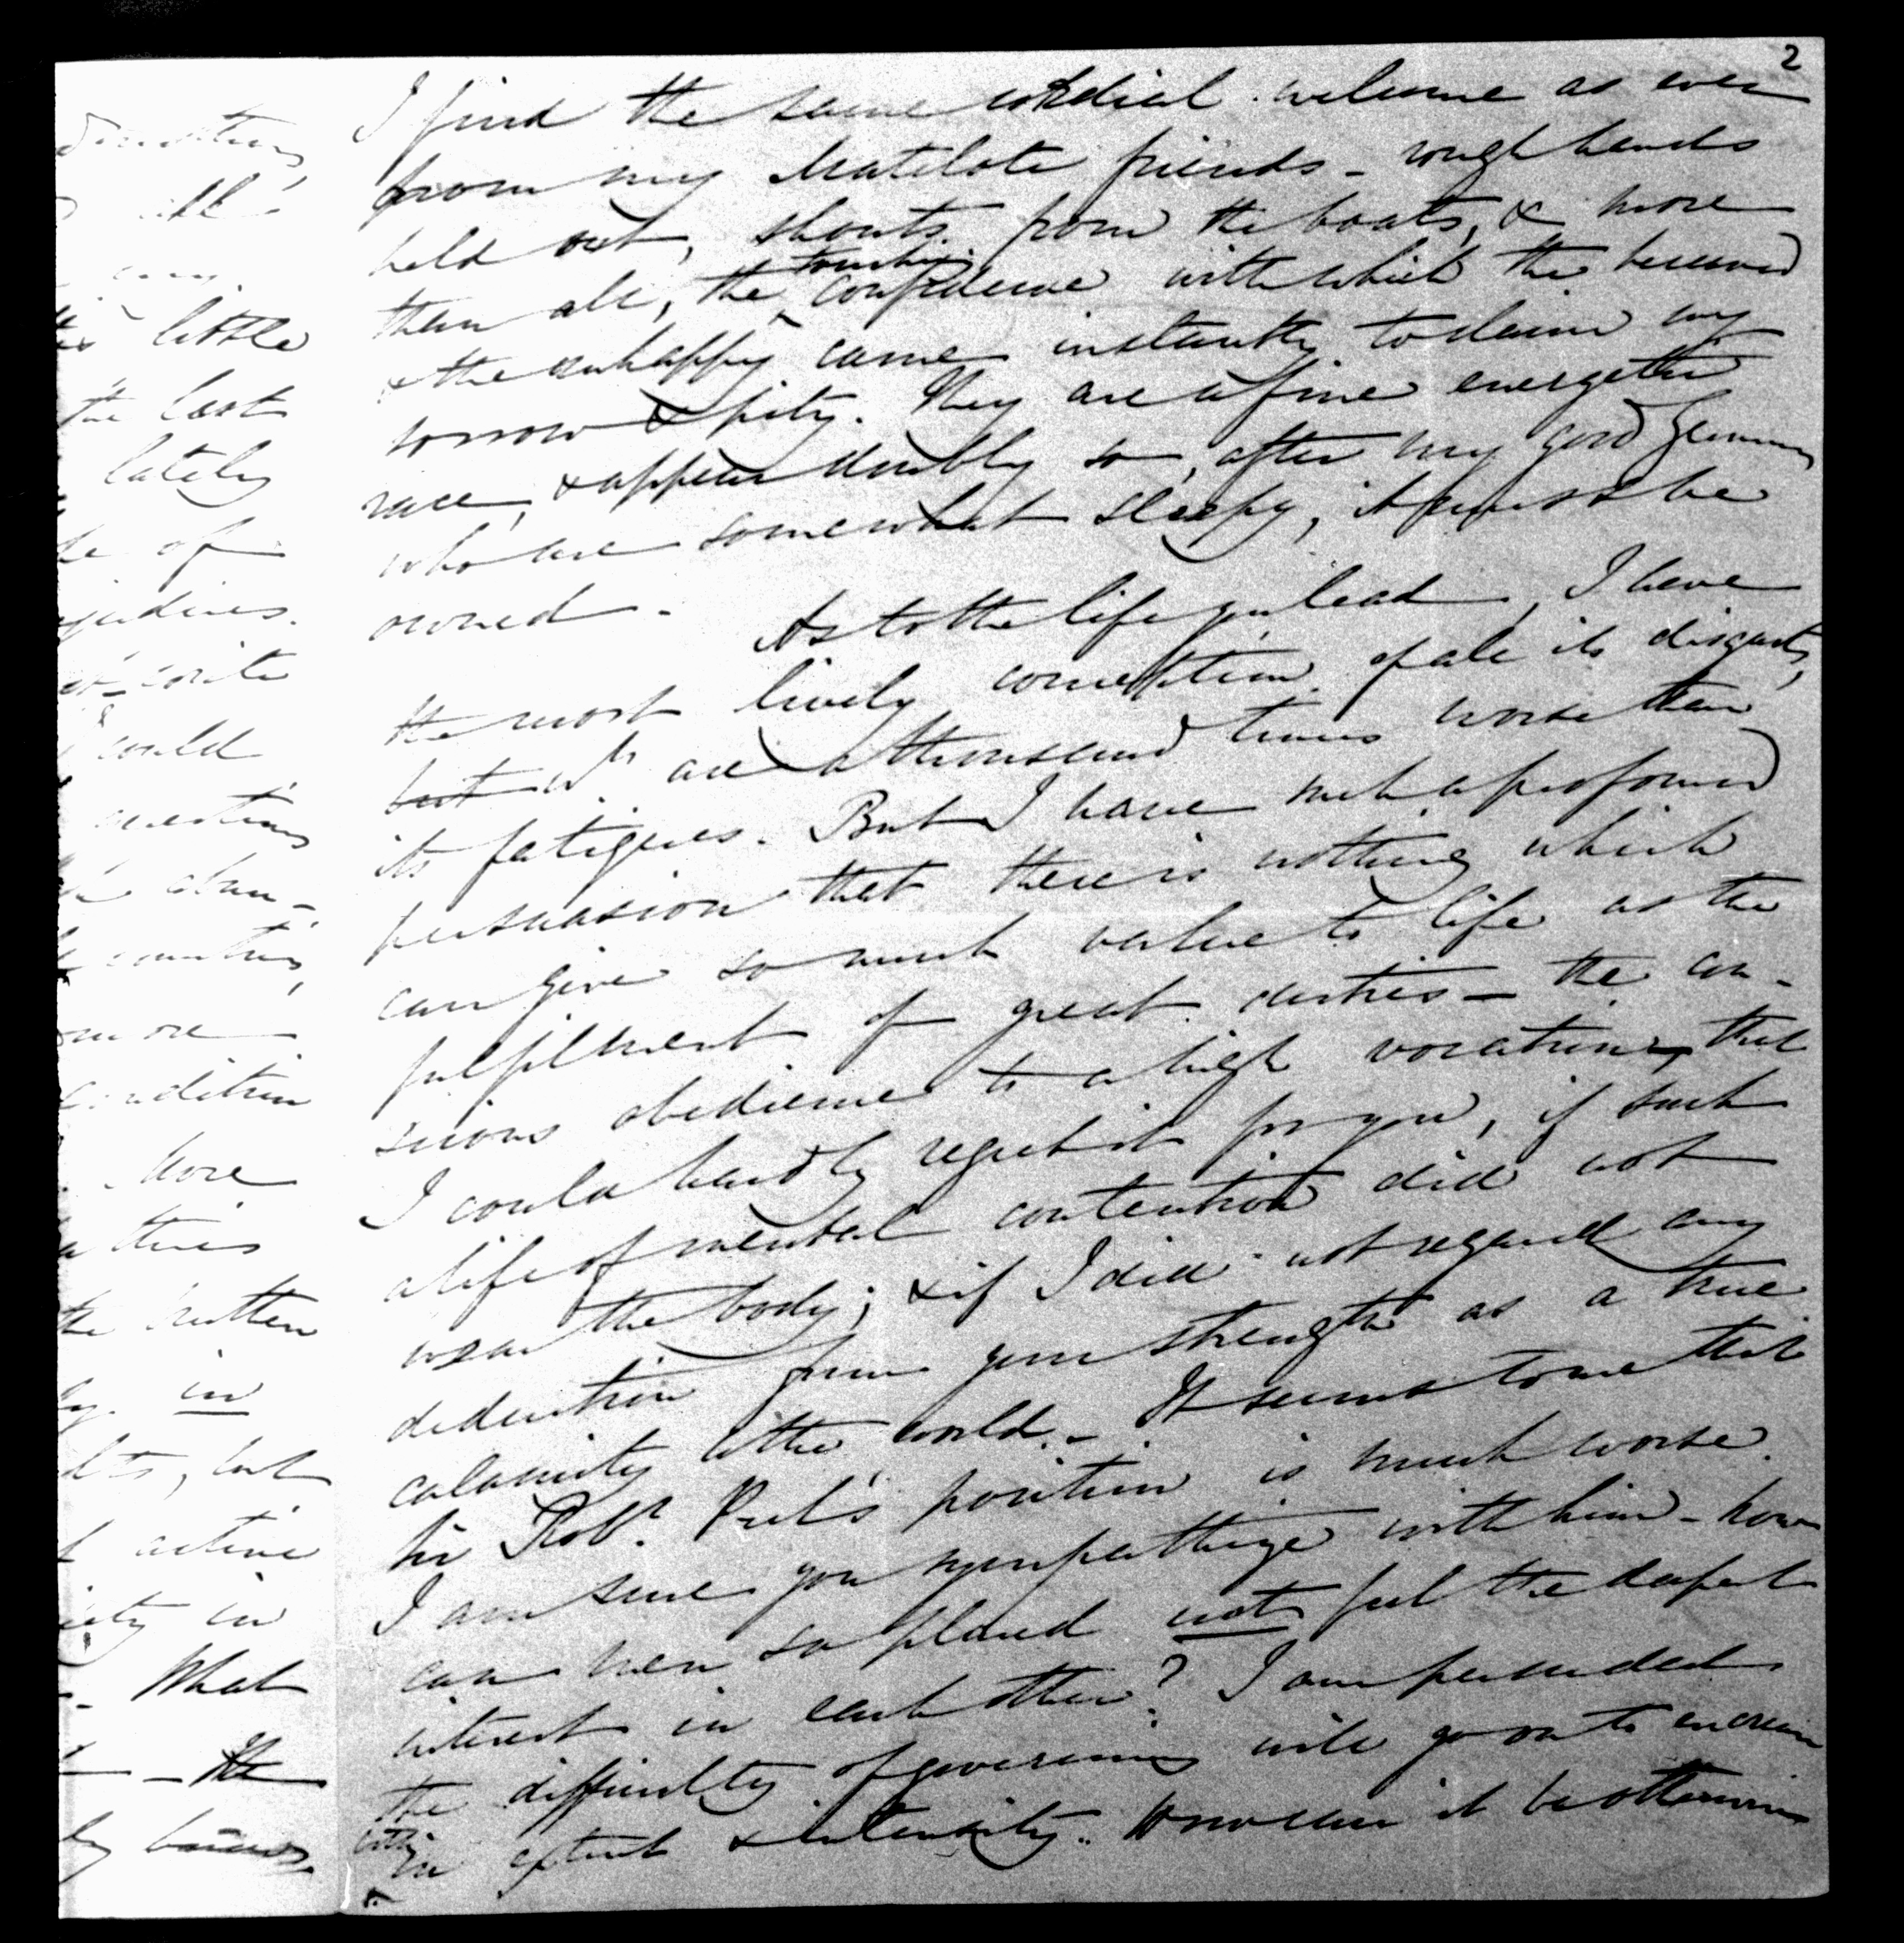 2
I find the same cordial welcome as ever
from my Matelote friends - rough hands
held out, shouts from the boats, & more
than all, the touching confidence with which the bereaved
& the unhappy came instantly to claim my
sorrow & pity. They are a fine energetic
race, & appear doubly so, after my good Germans
who are somewhat sleepy, it must be
owned -
As to the life you lead, I have
the most lively conception of all its disgusts,
but wh are a thousand times worse than
its fatigues. But I have such a profound
persuasion that there is nothing which
can give so much value to life as the
fulfilment of great duties - the con-
scious obedience to a high vocation, that
I could hardly regret it for you, if such
a life of mental contention did not
wear the body; & if I did not regard any
deduction from your strength as a true
calamity to the world. - It seems to me that
Sir Robt. Peel's position is much worse.
I am sure you sympathize with him - how
can men so placed not feel the deepest
interest in each other? I am persuaded
the difficulty of governing will go on to encrease
both in extent & intensity. How can it be otherwise
little
the last
lately
of
could
questions
countries,
more
condition
More
in
but
active
in
What
- the